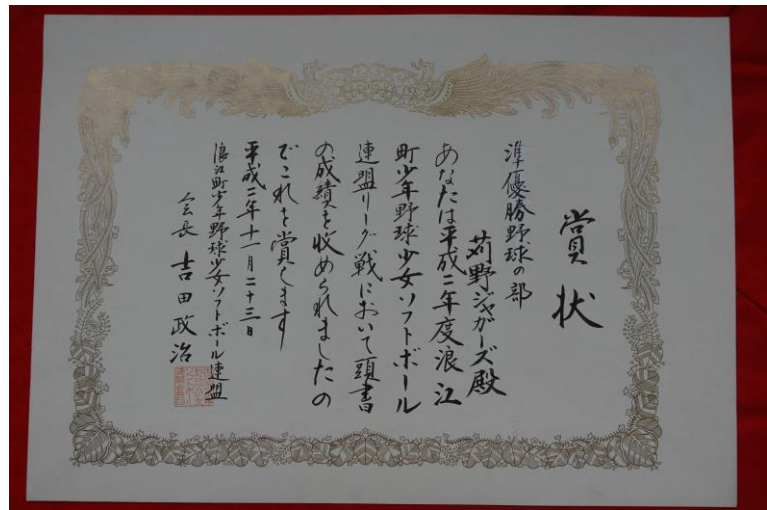 賞状
準優勝野球の部
苅野ジャガーズ殿
あなたは平成二年度浪江
町少年野球少女ソフトボール
連盟リーグ戦において頭書
の成績を收められましたの
でこれを賞します
平成二年十一月二十三日
浪江町少年野球少女ソフトボール連盟
会長 吉田政治